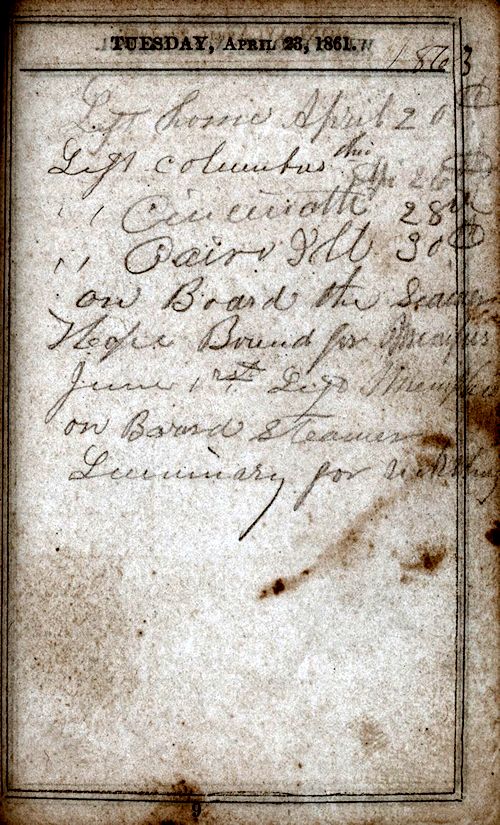 TUESDAY, APRIL 23, 1861.
1863
Left home April 20th
Left Columbus Ohio
Apr 26th
" Cincinatti 28th
" Cairo Ill 30th
on Board the Seamer
Hope Bound for Memphis
June 1rst Left Memphis
on Board Steamer
Luminary for